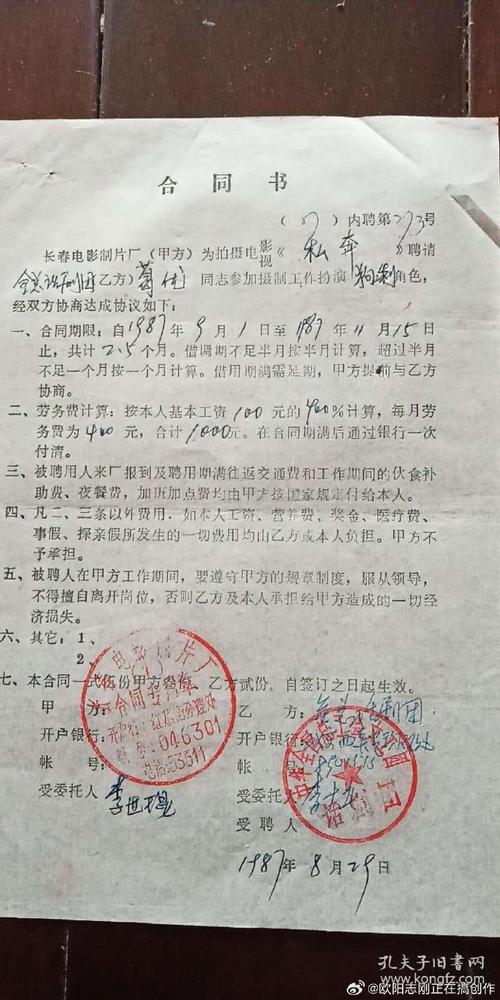 合同书
(87)内聘第273号
长春电影制片厂(甲方)为拍摄电影视《私奔》聘请
全总话剧团乙方)葛优同志参加摄制工作扮演狗剩角色,
经双方协商达成协议如下:
一、合同期限:自1987年9月1日至1987年11月15日
止,共计2.5个月。借调期不足半月按半月计算,超过半月
不足一个月按一个月计算。借用期满需延期,甲方提前与乙方
协商。
二、劳务费计算:按本人基本工资100元的400%计算,每月劳
务费为400元,合计1000元。在合同期满后通过银行一次
付清。
三、被聘用人来厂报到及聘用期满往返交通费和工作期间的伙食补
助费、夜餐费,加班加点费均由甲方按国家规定付给本人。
四、凡二、三条以外费用,如本人工资、营养费、奖金、医疗费、
事假、探亲假所发生的一切费用均由乙方或本人负担。甲方不
予承担。
五、被聘人在甲方工作期间,要遵守甲方的规章制度,服从领导,
不得擅自离开岗位,否则乙方及本人承担给甲方造成的一切经
济损失。
六、其它:1、
2、
七、本合同一式伍份甲方叁份,乙方贰份。自签订之日起生效。
甲方: 乙方:全总话剧团
开户银行: 开户银行:
帐号: 帐号:
受委托人 李世琨 受委托人
受聘人
1987年8月29日
电影制片厂
合同专用章
046301
电话53511
话剧团
孔夫子旧书网
@欧阳志刚正在搞创作